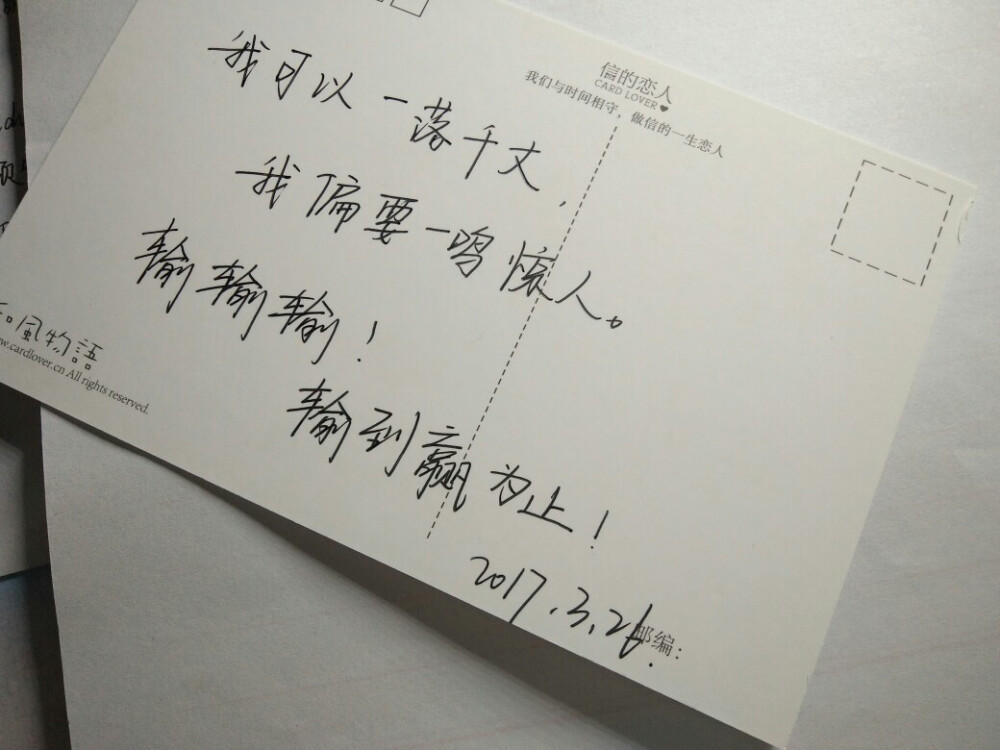 信的恋人
CARD LOVER
我们与时间相守，做信的一生恋人
我可以一落千丈，
我偏要一鸣惊人。
输输输！
输到赢为止！
2017.3.26.
邮编：
風物語
cardlover.cn All rights reserved.